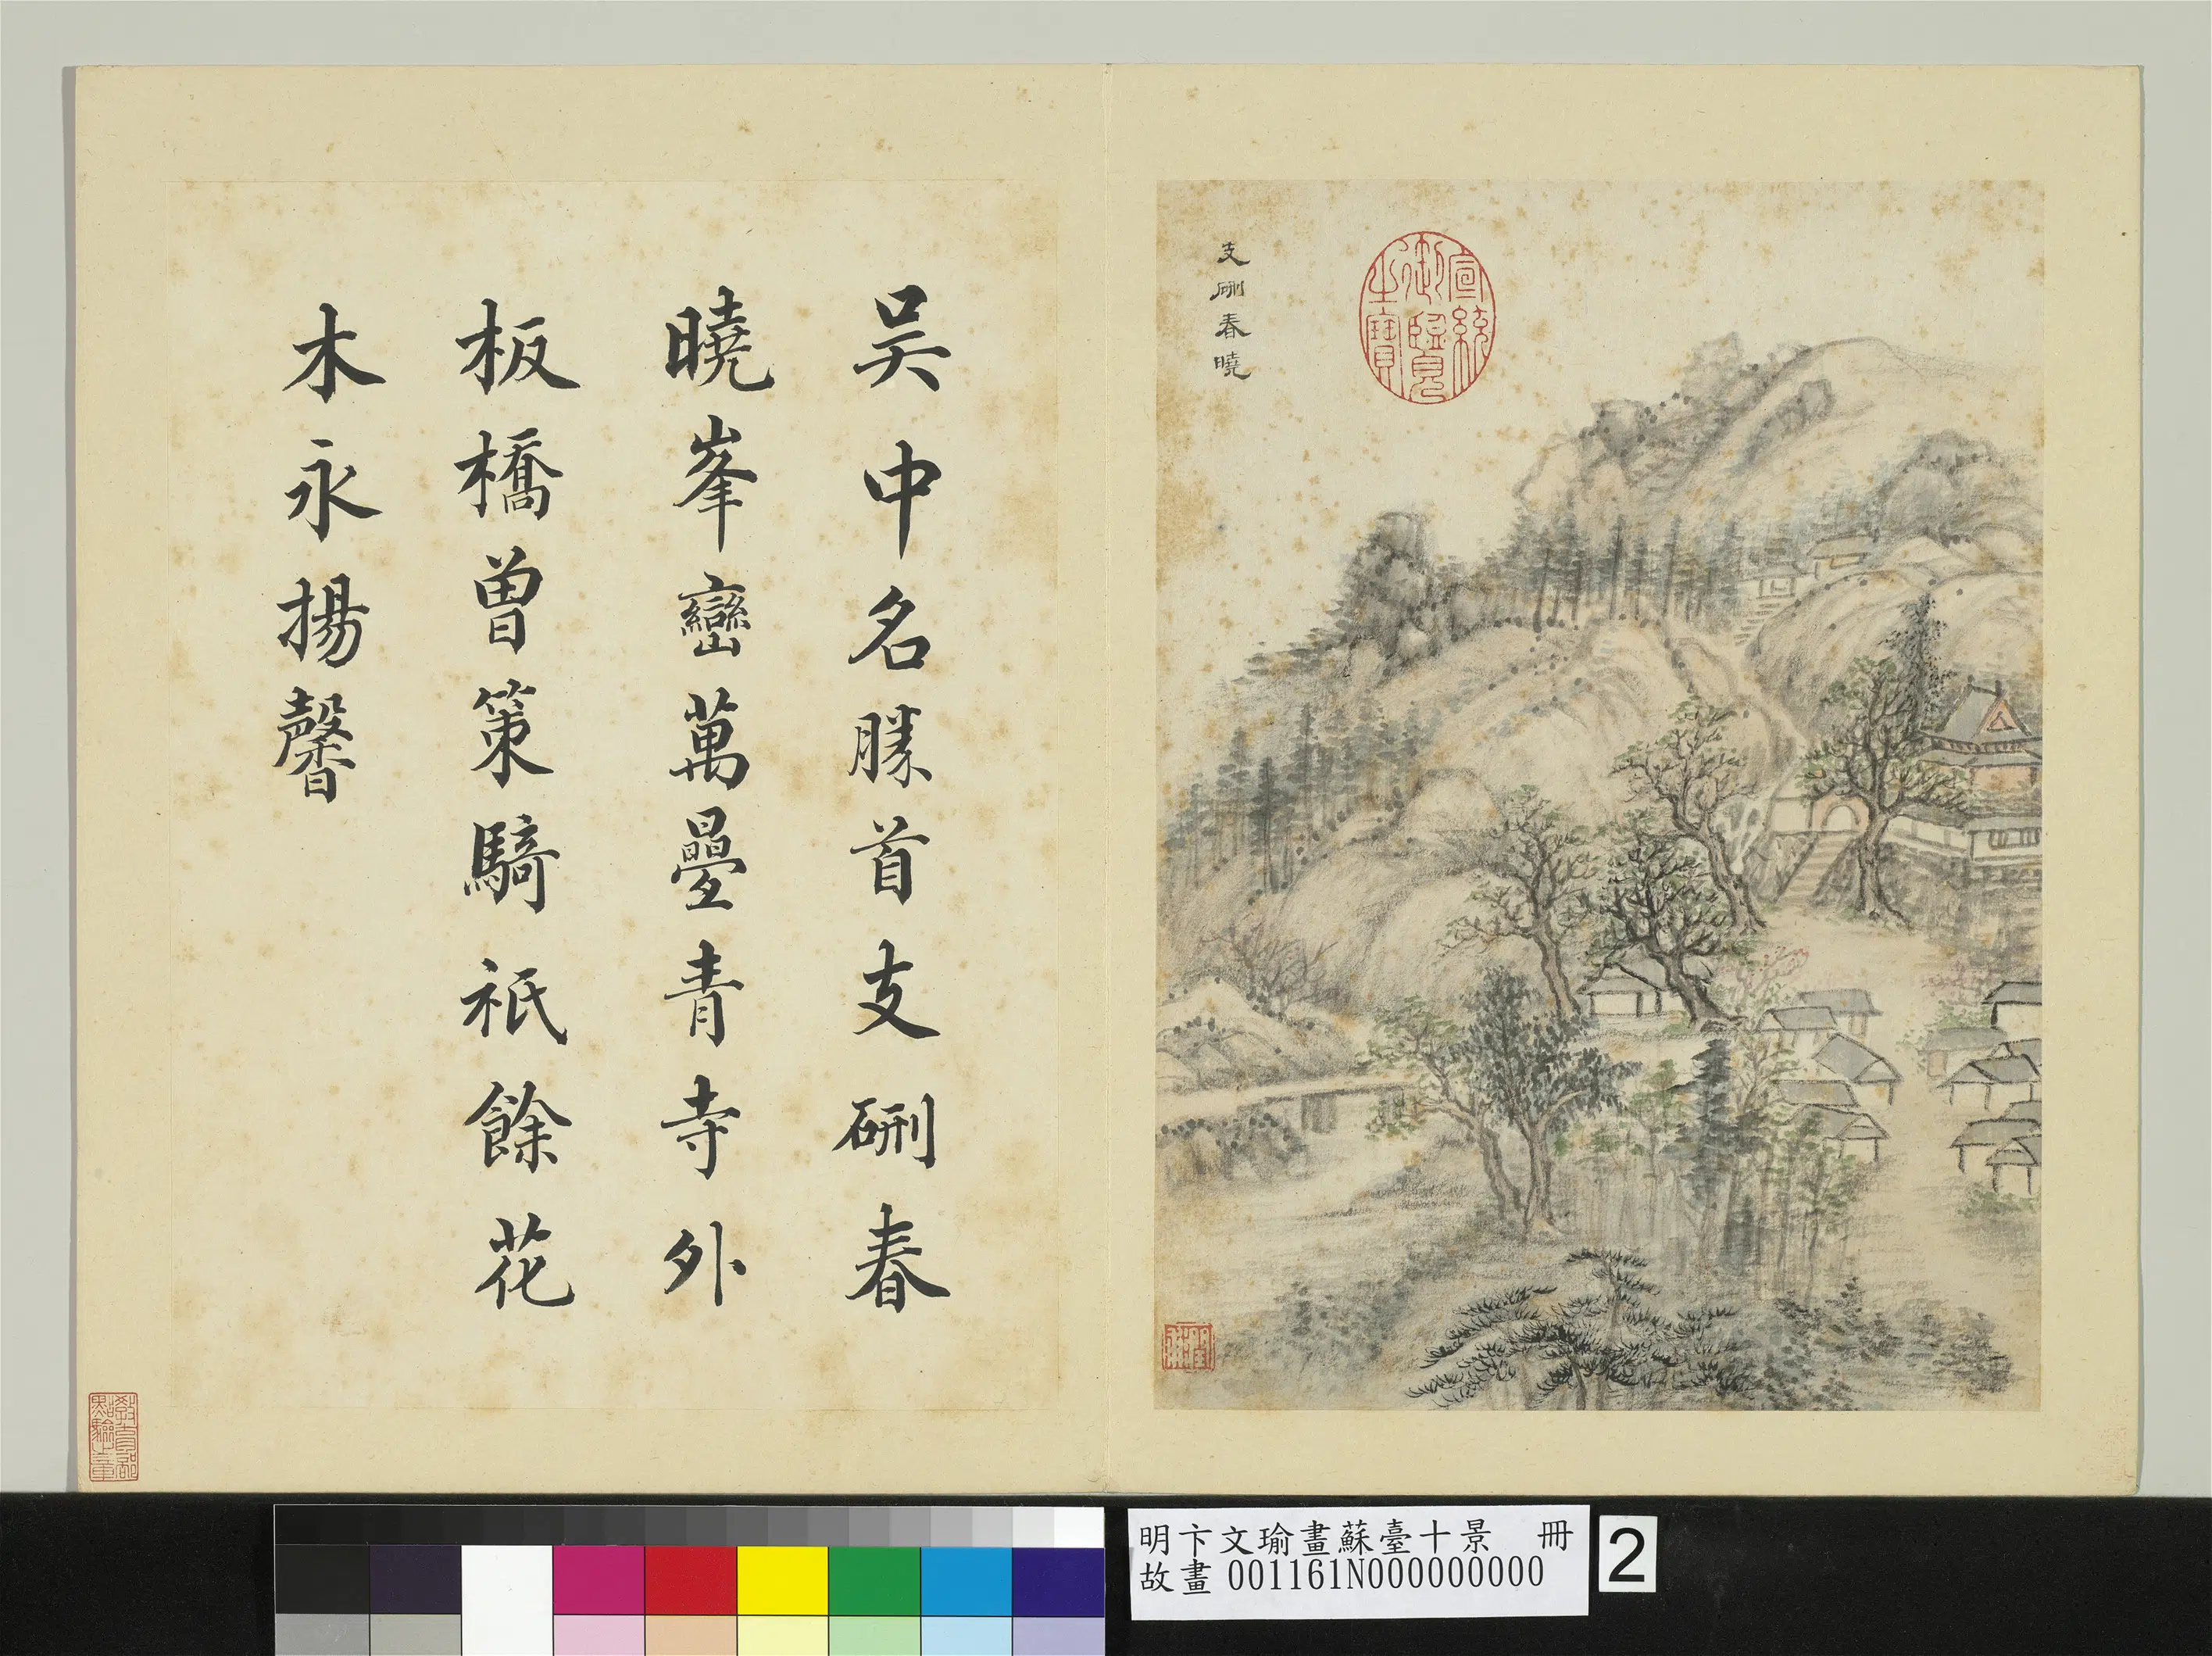 支硎春曉
宣統御覽之寶
吳中名勝首支硎春
曉峯巒萬疊青寺外
板橋曾策騎祇餘花
木永揚馨
教育部點驗之章
明卞文瑜畫蘇臺十景 冊
故畫 001161N000000000
2